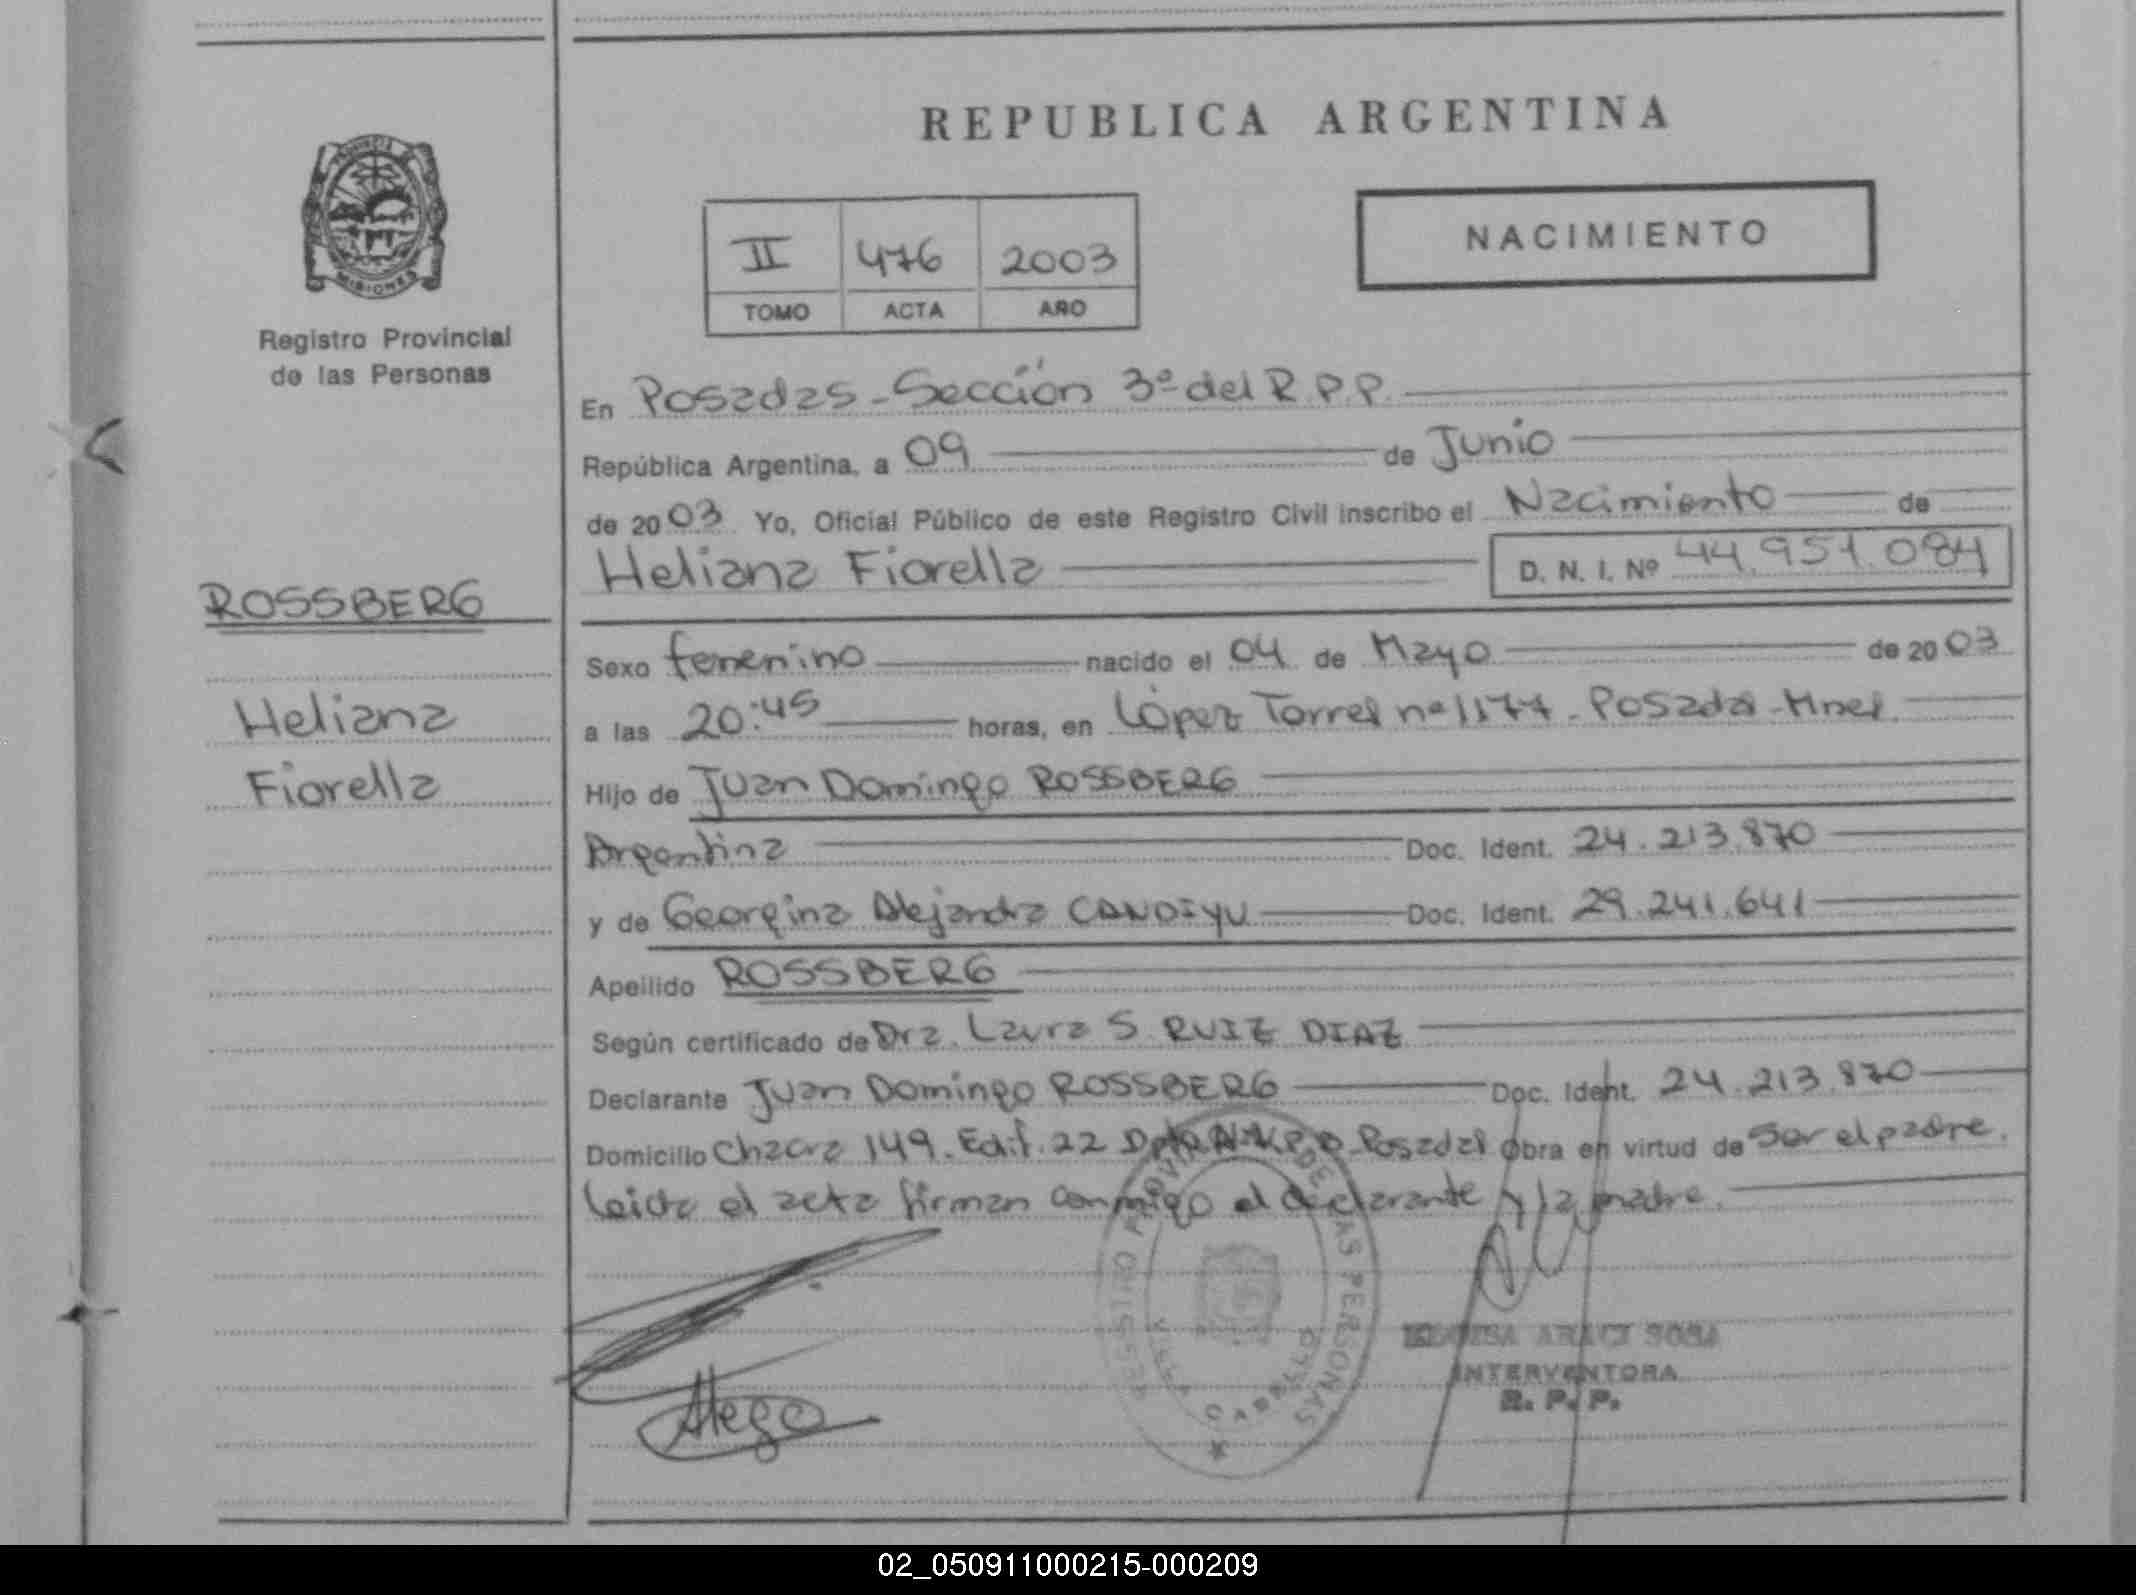 REPUBLICA ARGENTINA
PROVINCIA DE
MISIONES
Registro Provincial
de las Personas
II 476 2003
TOMO ACTA AÑO
NACIMIENTO
ROSSBERG
Heliana
Fiorella
En Posadas - Sección 3º del R.P.P.
República Argentina, a 09 de Junio
de 2003 Yo, Oficial Público de este Registro Civil inscribo el Nacimiento de
Heliana Fiorella D. N. I. Nº 44.951.084
Sexo femenino nacido el 04 de Mayo de 2003
a las 20:45 horas, en López Torres nº 1177 - Posadas - Mnes.
Hijo de Juan Domingo ROSSBERG
Argentina Doc. Ident. 24.213.870
y de Georgina Alejandra CANDIYU Doc. Ident. 29.241.641
Apellido ROSSBERG
Según certificado de Dra. Laura S. RUIZ DIAZ
Declarante Juan Domingo ROSSBERG Doc. Ident. 24.213.870
Domicilio Chacra 149. Edif. 22 Posadas obra en virtud de Ser el padre.
Leída el acta firman conmigo el declarante y la madre.
REGISTRO PROVINCIAL DE LAS PERSONAS
VILLA CABELLO
ARACI SOSA
INTERVENTORA
R. P. P.
02_050911000215-000209